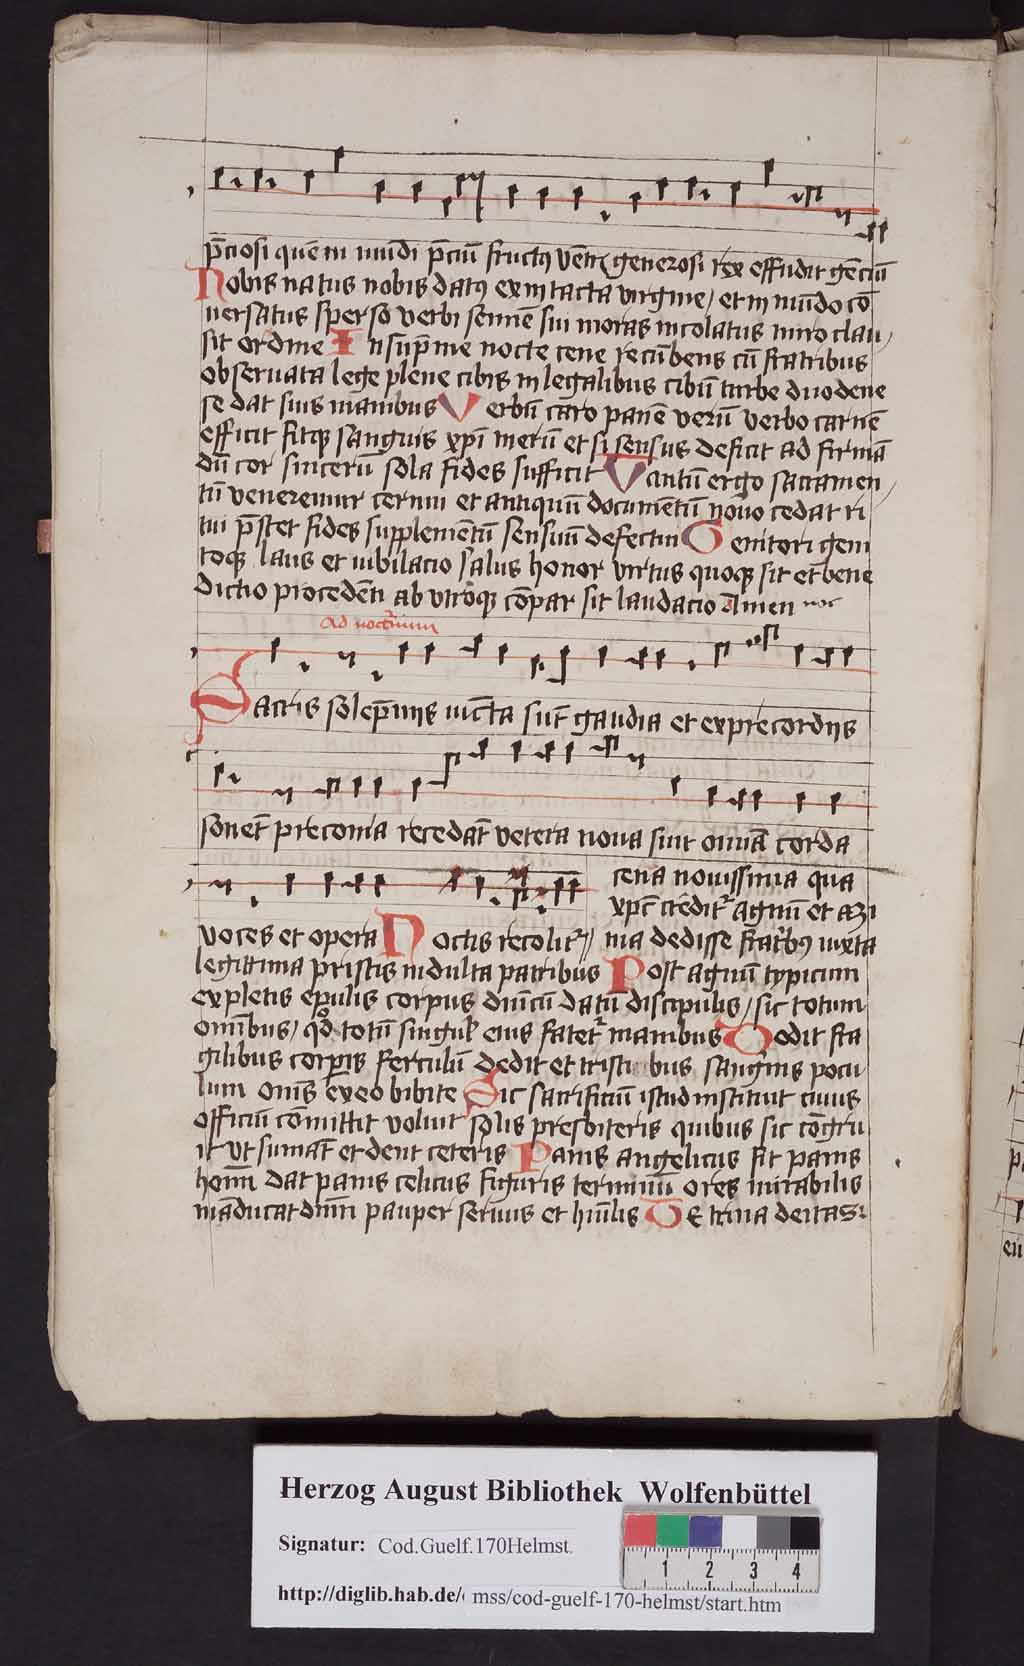 p̄ciosi quē in mūdi p̄ciū fructꝯ vētris generosi rex effudit gēciū
Nobis natus nobis datꝯ ex intacta virgine / et in mūdo cō
uersatus sperso verbi semīe sui moras incolatus miro clau /
sit ordine In sup̄me nocte cene recūbens cū fratribus
obseruata lege plene cibis in legalibus cibū turbe duodene
se dat suis manibus Verbū caro panē verū verbo carnē
efficit fitqꝫ sanguis xp̄i merū et si sensus deficit ad firmā
dū cor sincerū sola fides sufficit Tantū ergo sacramen /
tū veneremur cernui et antiquū documētū nouo cedat ri
tui p̄stet fides supplemētū sensuū defectui Genitori geni
toqꝫ laus et iubilacio salus honor virtus quoqꝫ sit et bene
dictio procedēti ab vtroqꝫ cōpar sit laudacio Amen
ad nocturnum
Sacris solēpnijs iūcta sūt gaudia et ex precordijs
sonēt preconia recedāt vetera noua sint omīa corda
cena nouissima qua
xp̄c crēditʳ agnū et azi
voces et opera Noctis recolitʳ // ma dedisse fratribꝯ iuxta
legittima pristis indulta patribus Post agnū typicum
expletis epulis corpus dnīcū datū discipulis / sic totum
omībus / qd̄ totū singul' eius fatetʳ manibus Dedit fra
gilibus corpis ferculū dedit et tristibus sangīnis pocu
lum omīs ex eo bibite Sic sacrificiū istud instituit cuius
officiū cōmittit voluit solis presbiteris quibus sic cōgru
it vt sumāt et dent ceteris Panis angelicus fit panis
homī dat panis celicus figuris terminū O res mirabilis
māducat dnm̄ pauper seruus et hūilis Te trina deitas
Herzog August Bibliothek Wolfenbüttel
Signatur: Cod.Guelf.170Helmst.
1 2 3 4
http://diglib.hab.de/ mss/cod-guelf-170-helmst/start.htm